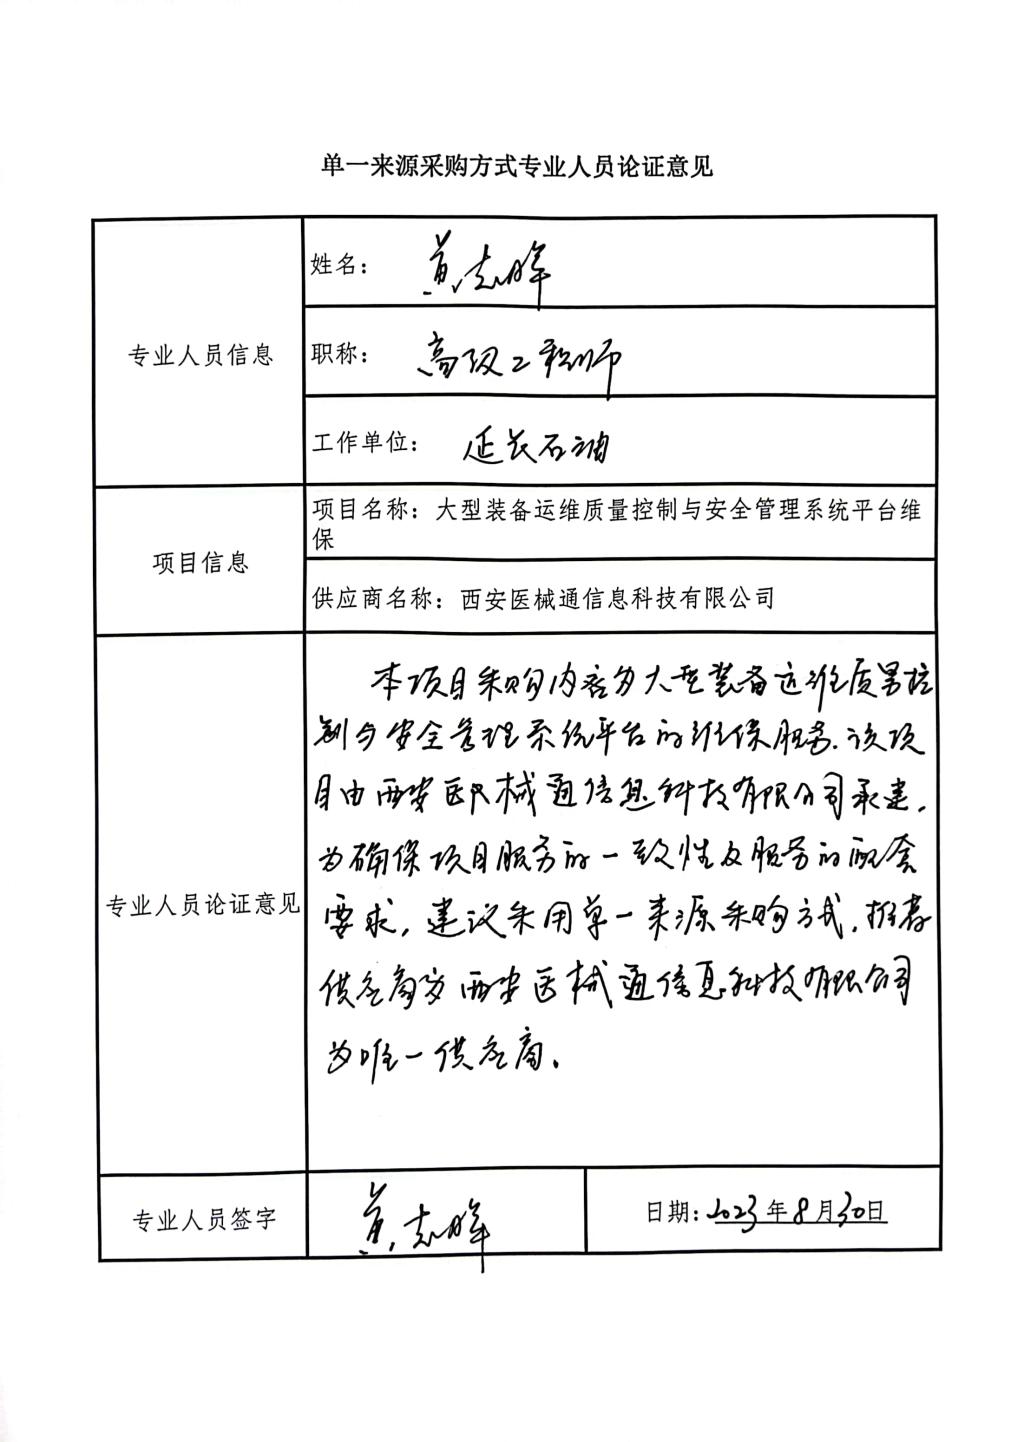 单一来源采购方式专业人员论证意见
专业人员信息
姓名：黄志晖
职称：高级工程师
工作单位：延长石油
项目信息
项目名称：大型装备运维质量控制与安全管理系统平台维
保
供应商名称：西安医械通信息科技有限公司
专业人员论证意见
本项目采购内容为大型装备运维质量控
制与安全管理系统平台的维保服务.该项
目由西安医械通信息科技有限公司承建,
为确保项目服务的一致性及服务的配套
要求,建议采用单一来源采购方式.推荐
供应商为西安医械通信息科技有限公司
为唯一供应商.
专业人员签字
黄志晖
日期:2023年8月30日